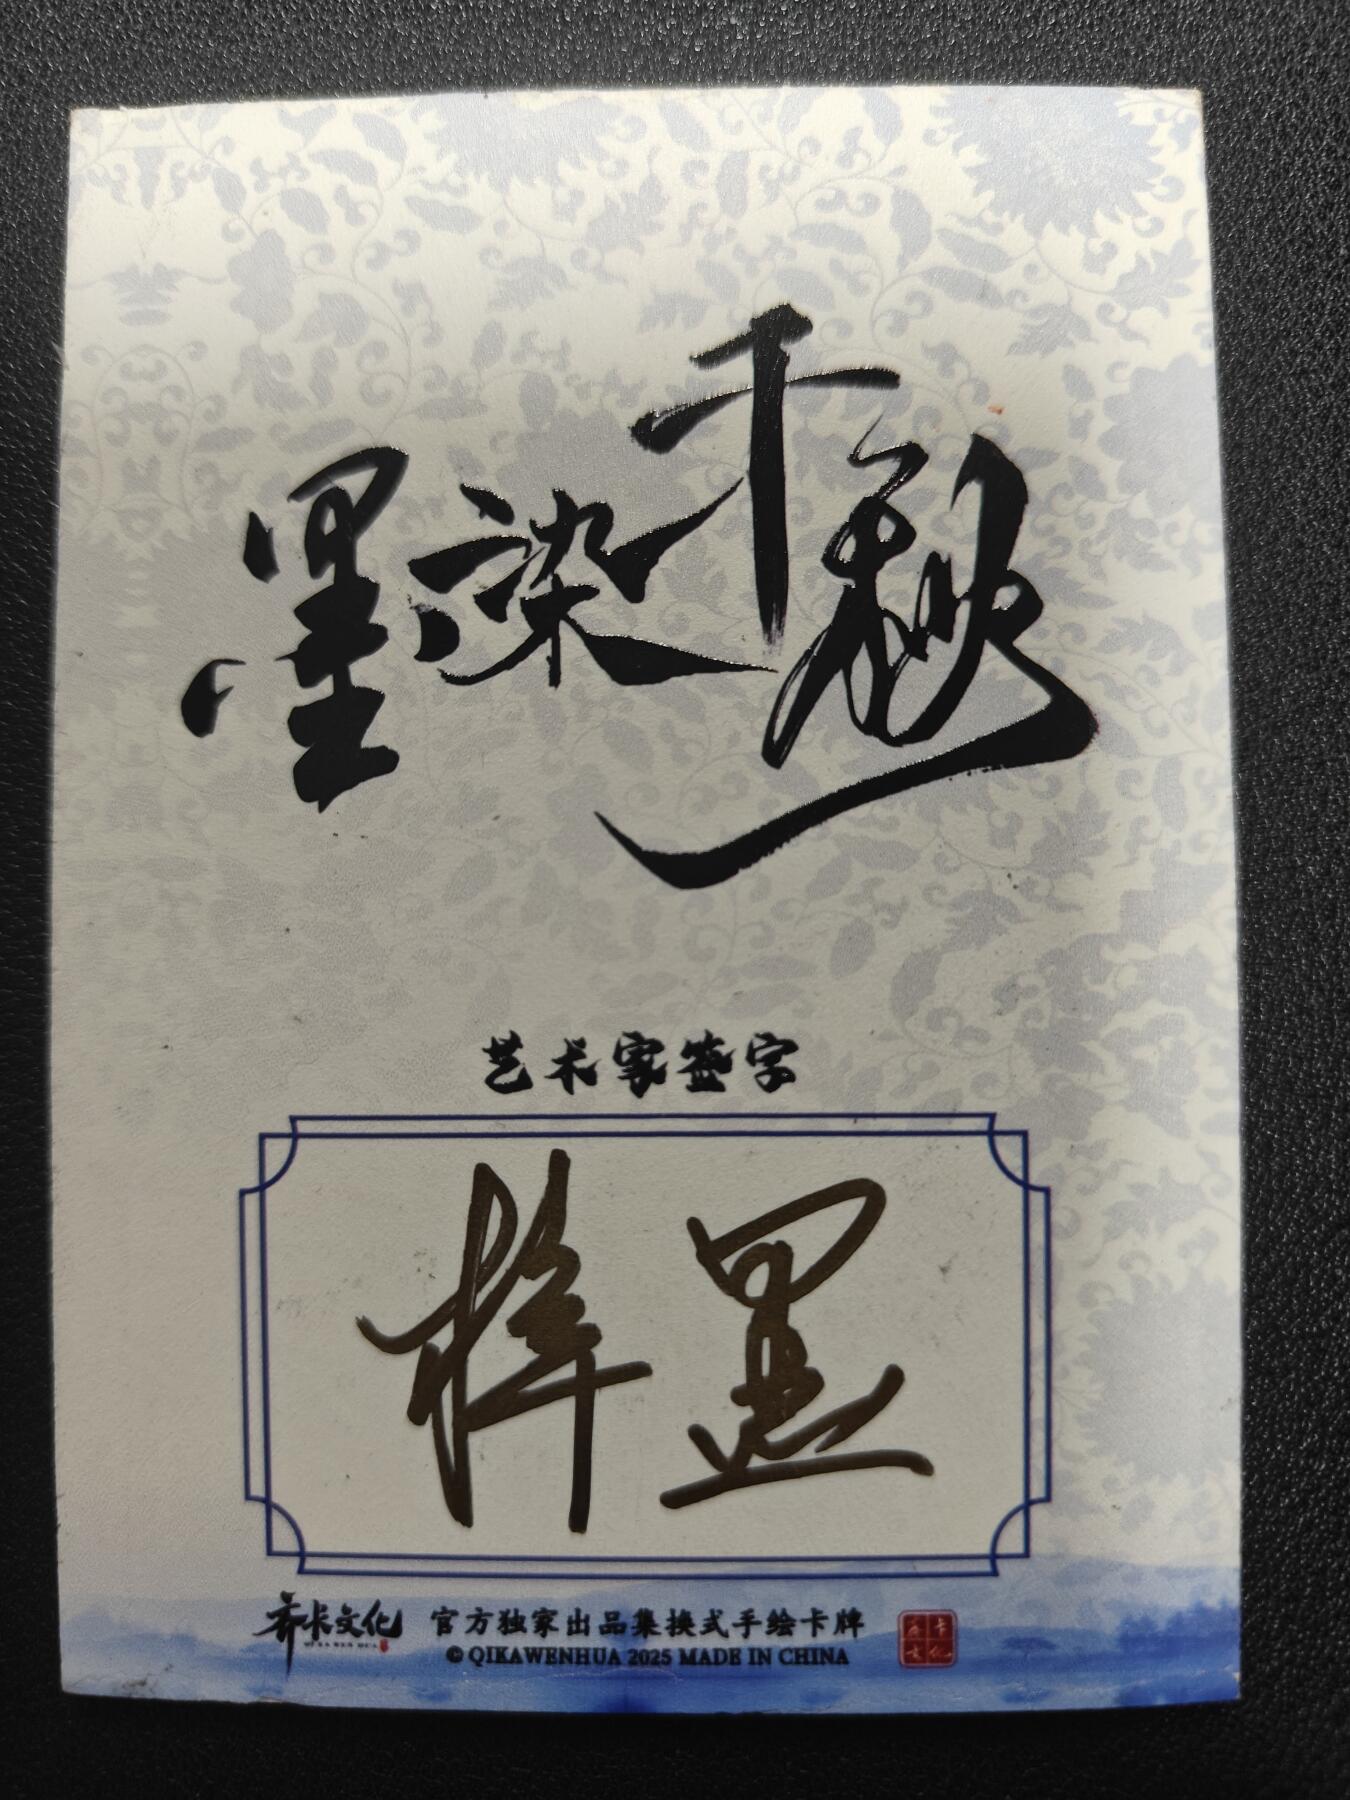 墨染千秋
艺术家签字
梓墨
齐卡文化
QI KA WEN HUA
官方独家出品集换式手绘卡牌
© QIKAWENHUA 2025 MADE IN CHINA
齐卡
文化